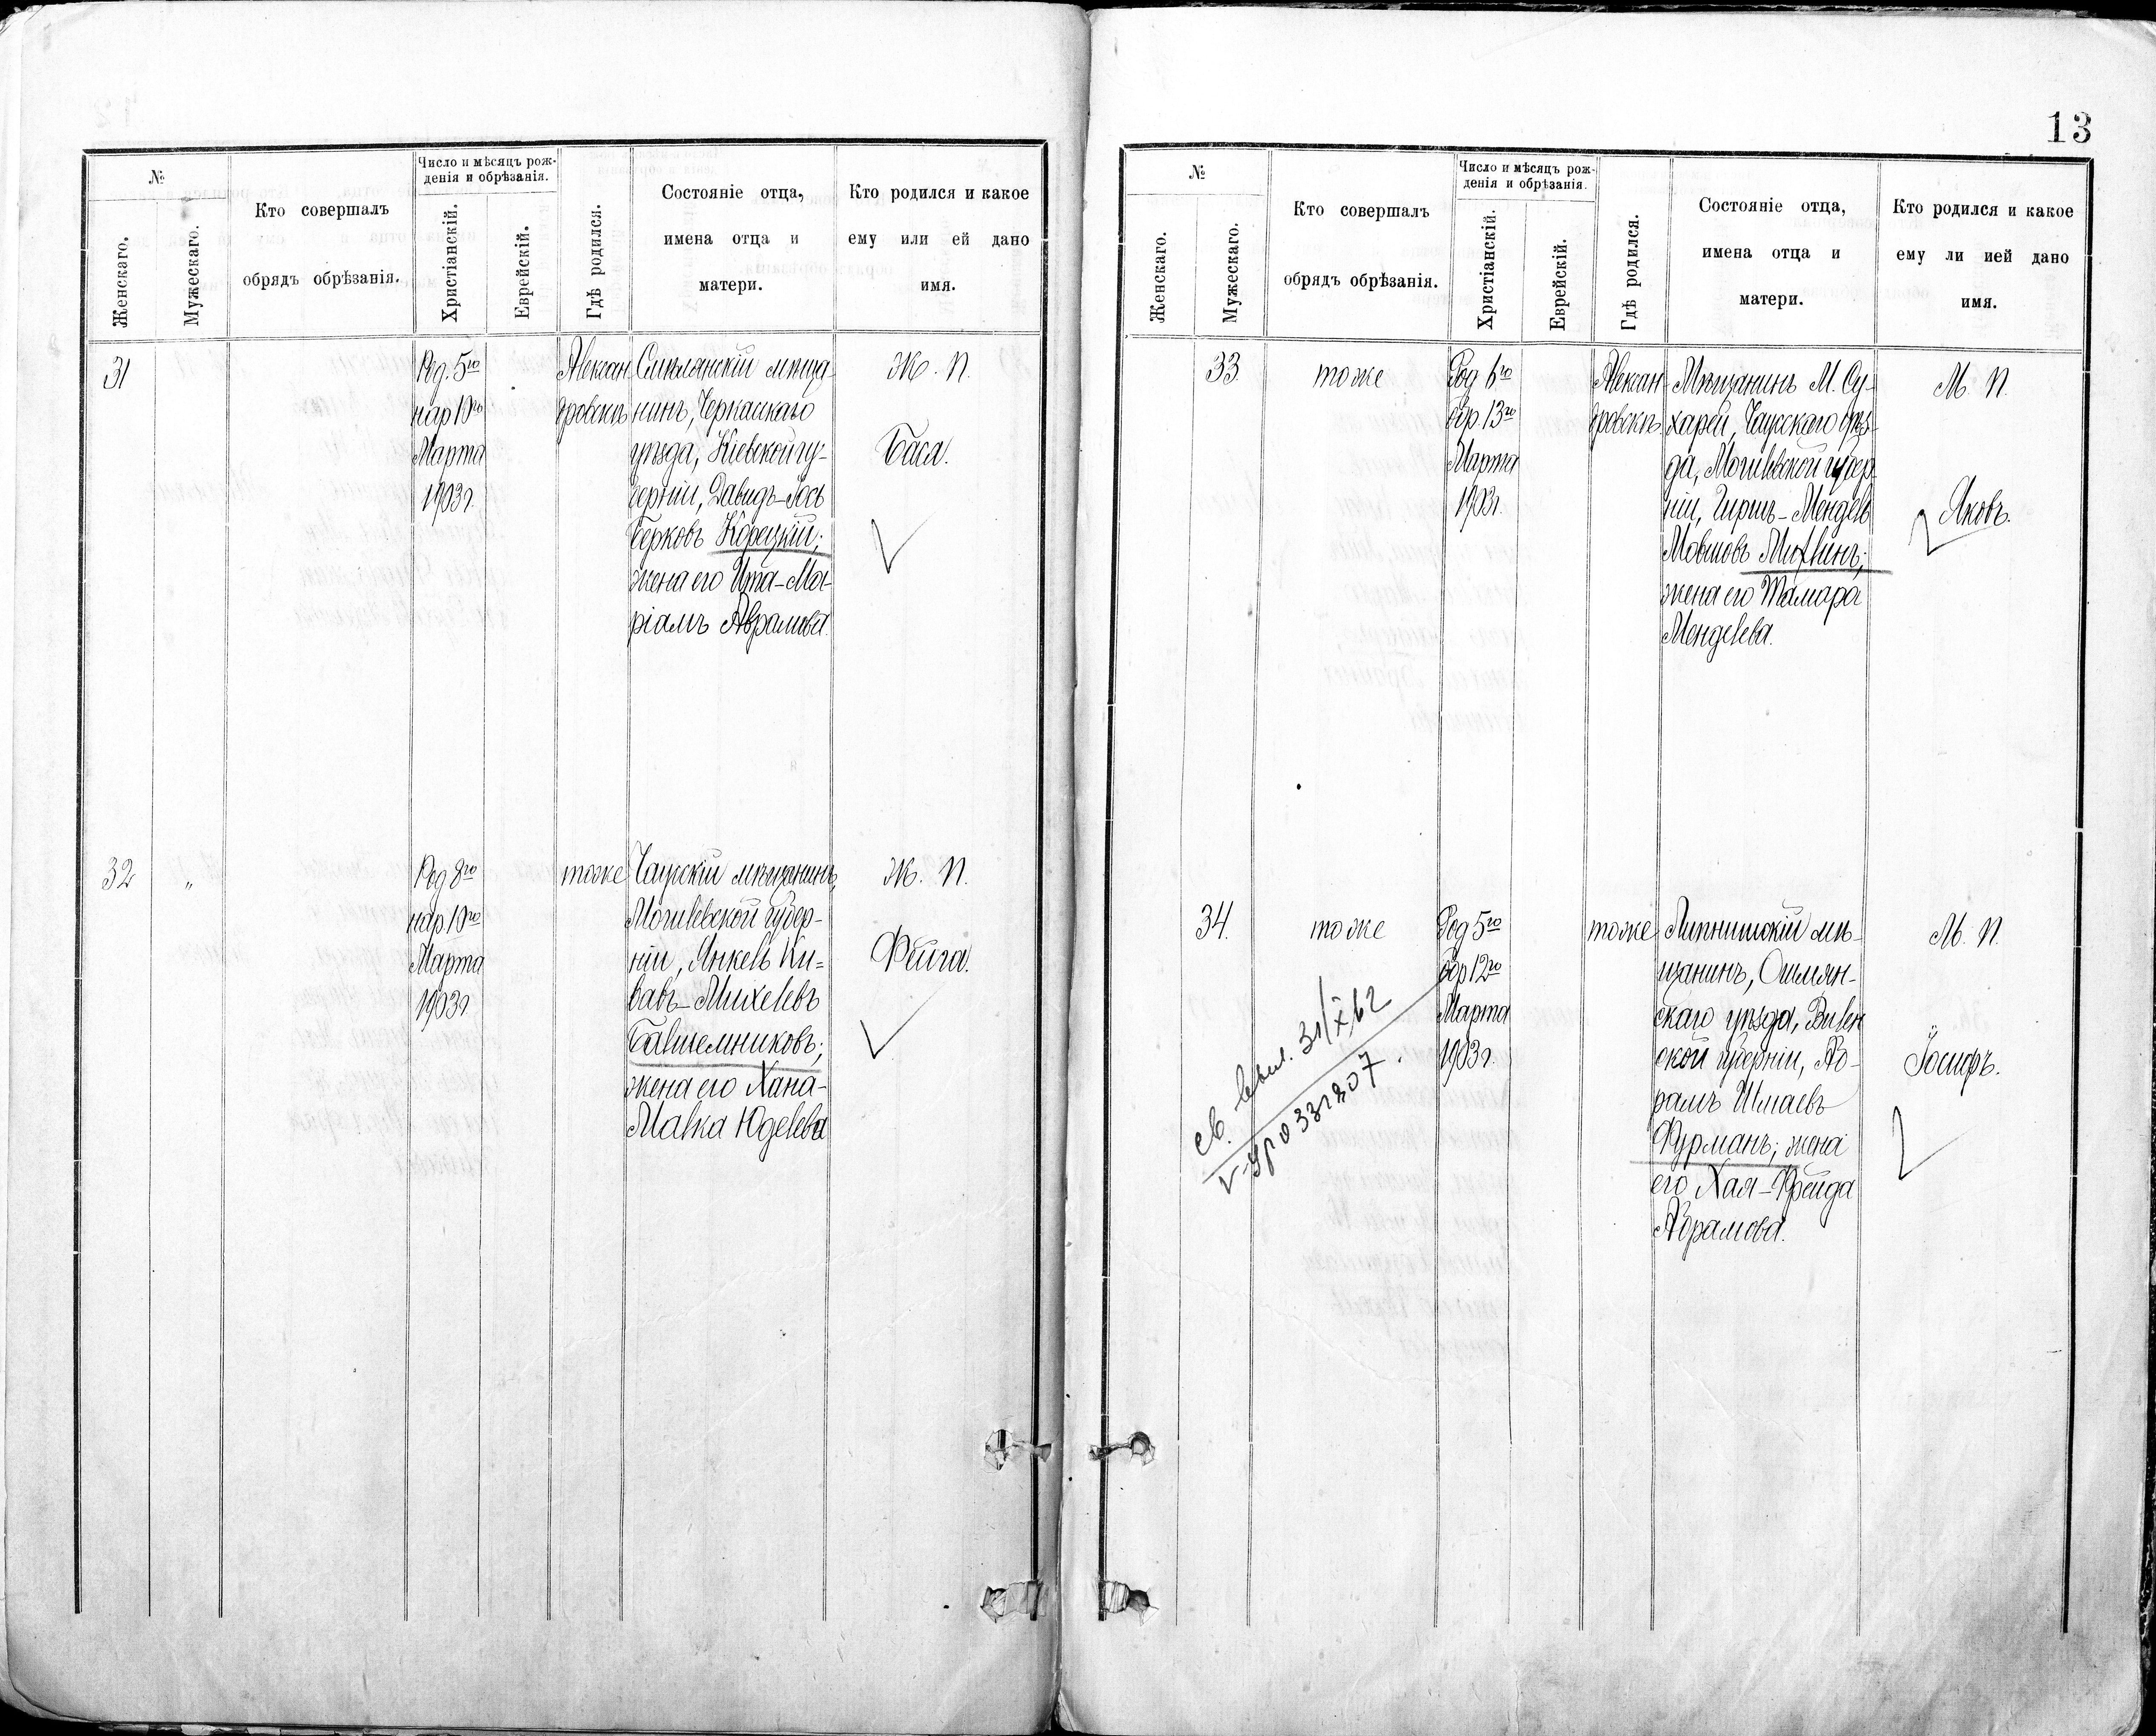 13
№
Женскаго.
Мужескаго.
Кто совершалъ
обрядъ обрѣзанія.
Число и мѣсяцъ рож-
денія и обрѣзанія.
Христіанскій.
Еврейскій.
Гдѣ родился.
Состояніе отца,
имена отца и
матери.
Кто родился и какое
ему или ей дано
имя.
31
Род. 5го
нар 10го
Марта
1903г.
Алексан
дровскъ
Смѣлянскій мѣща-
нинъ, Черкасскаго
уѣзда, Кіевской гу-
берніи, Давидъ-Іось
Берковъ Корецкій;
жена его Ита-Ма-
ріамъ Аврамова.
Ж. П.
Бася.
32
"
Род 8го
нар. 10го
Марта
1903г
тоже
Чаусскій мѣщанинъ,
Могилевской губер-
ніи, Янкель Ки=
вавъ-Михелевъ
жена его Хана-
Малка Юделева
Ж. П.
Фейга.
№
Женскаго.
Мужескаго.
Кто совершалъ
обрядъ обрѣзанія.
Число и мѣсяцъ рож-
денія и обрѣзанія.
Христіанскій.
Еврейскій.
Гдѣ родился.
Состояніе отца,
имена отца и
матери.
Кто родился и какое
ему ли ией дано
имя.
33
тоже
Род 6го
обр. 13го
Марта
1903г.
Алексан
дровскъ
Мѣщанинъ М. Су-
харей, Чаусскаго уѣз-
да, Могилевской губер
ніи, Гиршъ-Мендель
Мовшовъ
жена его Тамара
Менделева.
М. П.
Яковъ.
34.
тоже
Род 5го
обр 12го
Марта
1903г.
тоже
Липнишскій мѣ-
щанинъ, Ошмян-
скаго уѣзда, Вилен
ской губерніи, Аб-
рамъ Шмаевъ
Фурманъ; жена
его Хая-Фрейда
Абрамова.
М. П.
Іосифъ.
св. 31/X 62